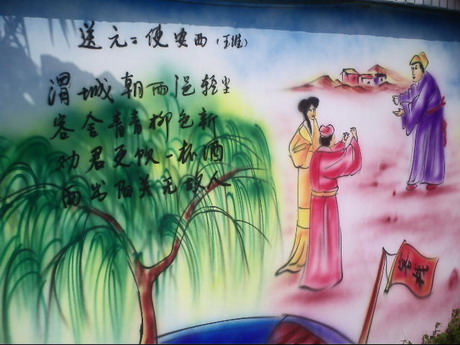 送元二使安西（王维）
渭城朝雨浥轻尘
客舍青青柳色新
劝君更饮一杯酒
西出阳关无故人